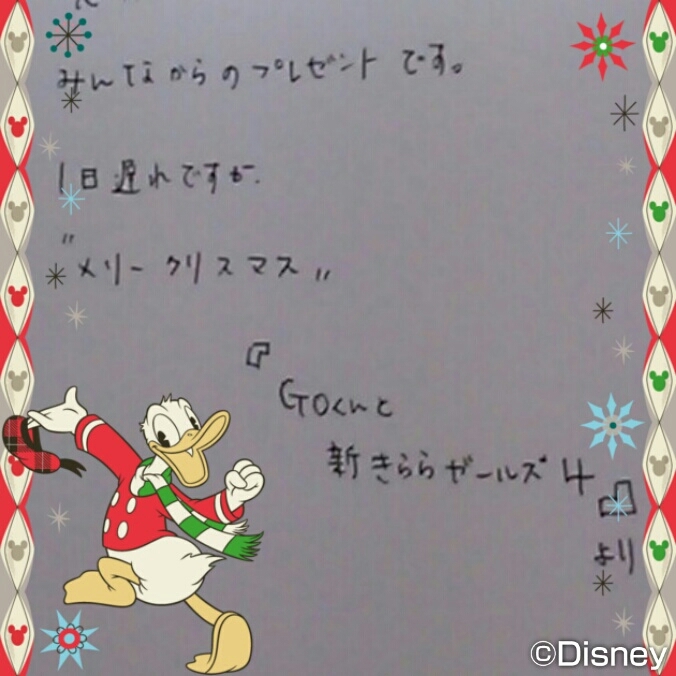 みんなからのプレゼントです。
1日遅れですが、
"メリークリスマス"
『GOくんと
新きららガールズ4』
より
©Disney